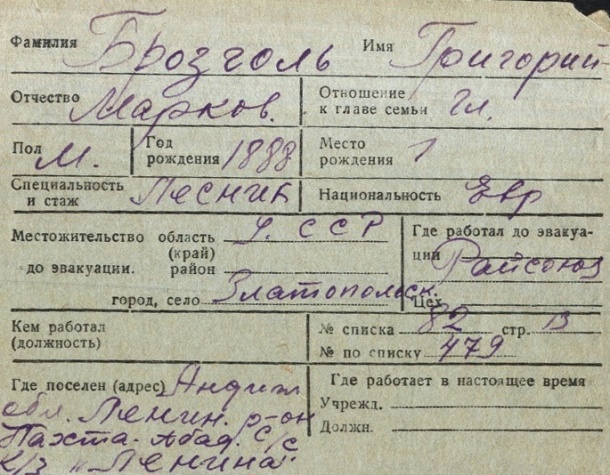 Фамилия Брозголь Имя Григорий
Отчество Марков. Отношение к главе семьи Гл.
Пол М. Год рождения 1888 Место рождения
Специальность и стаж Лесник Национальность Евр
Местожительство область (край) У. ССР Где работал до эвакуации Райсоюз
до эвакуации. район
город, село Златопольск. Цех
Кем работал (должность) № списка 82 стр. 13
№ по списку 479
Где поселен (адрес) Андиж Где работает в настоящее время
обл. Ленин. р-он Учрежд.
Пахта-Абад. с/с Должн.
к/з "Ленина"